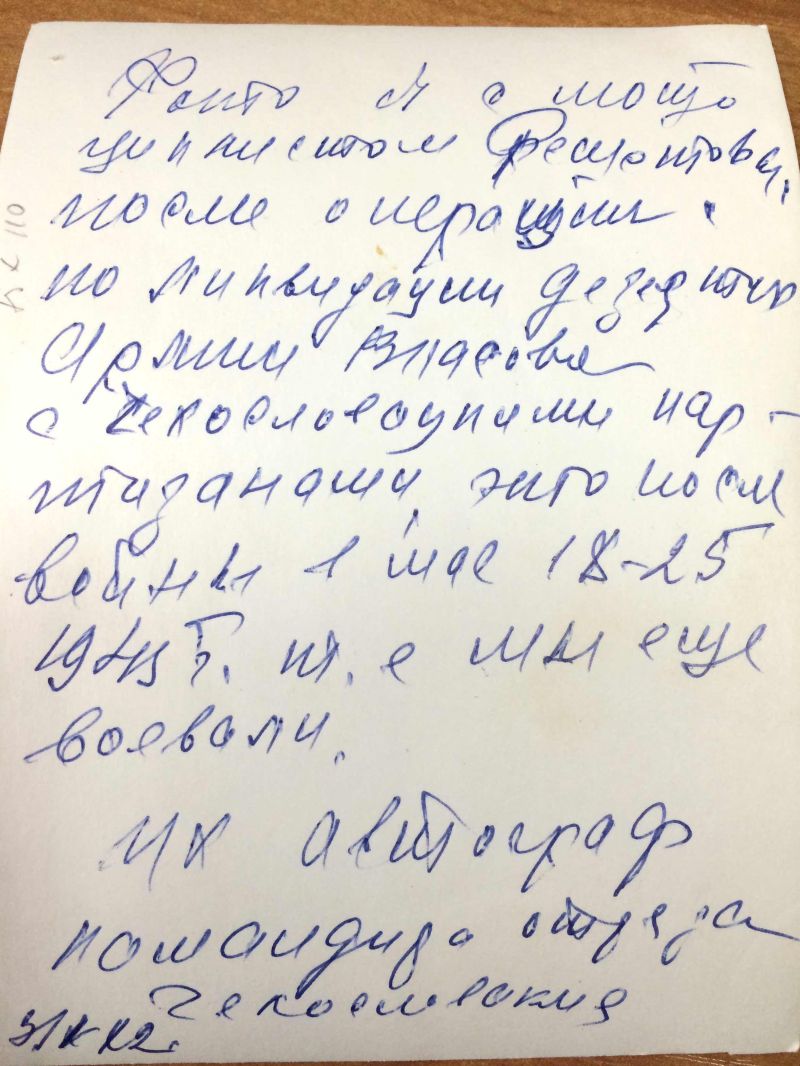 Фото Я с мото
циклистом Фесшотовы.
после операции
по ликвидации дезертир
Армии Власова
с Чехословацкими пар-
тизанами, это посл
войны в мае 18-25
1945 г. т. е мы еще
воевали.
Их автограф
командира отряда
Чехословакия
КК 110